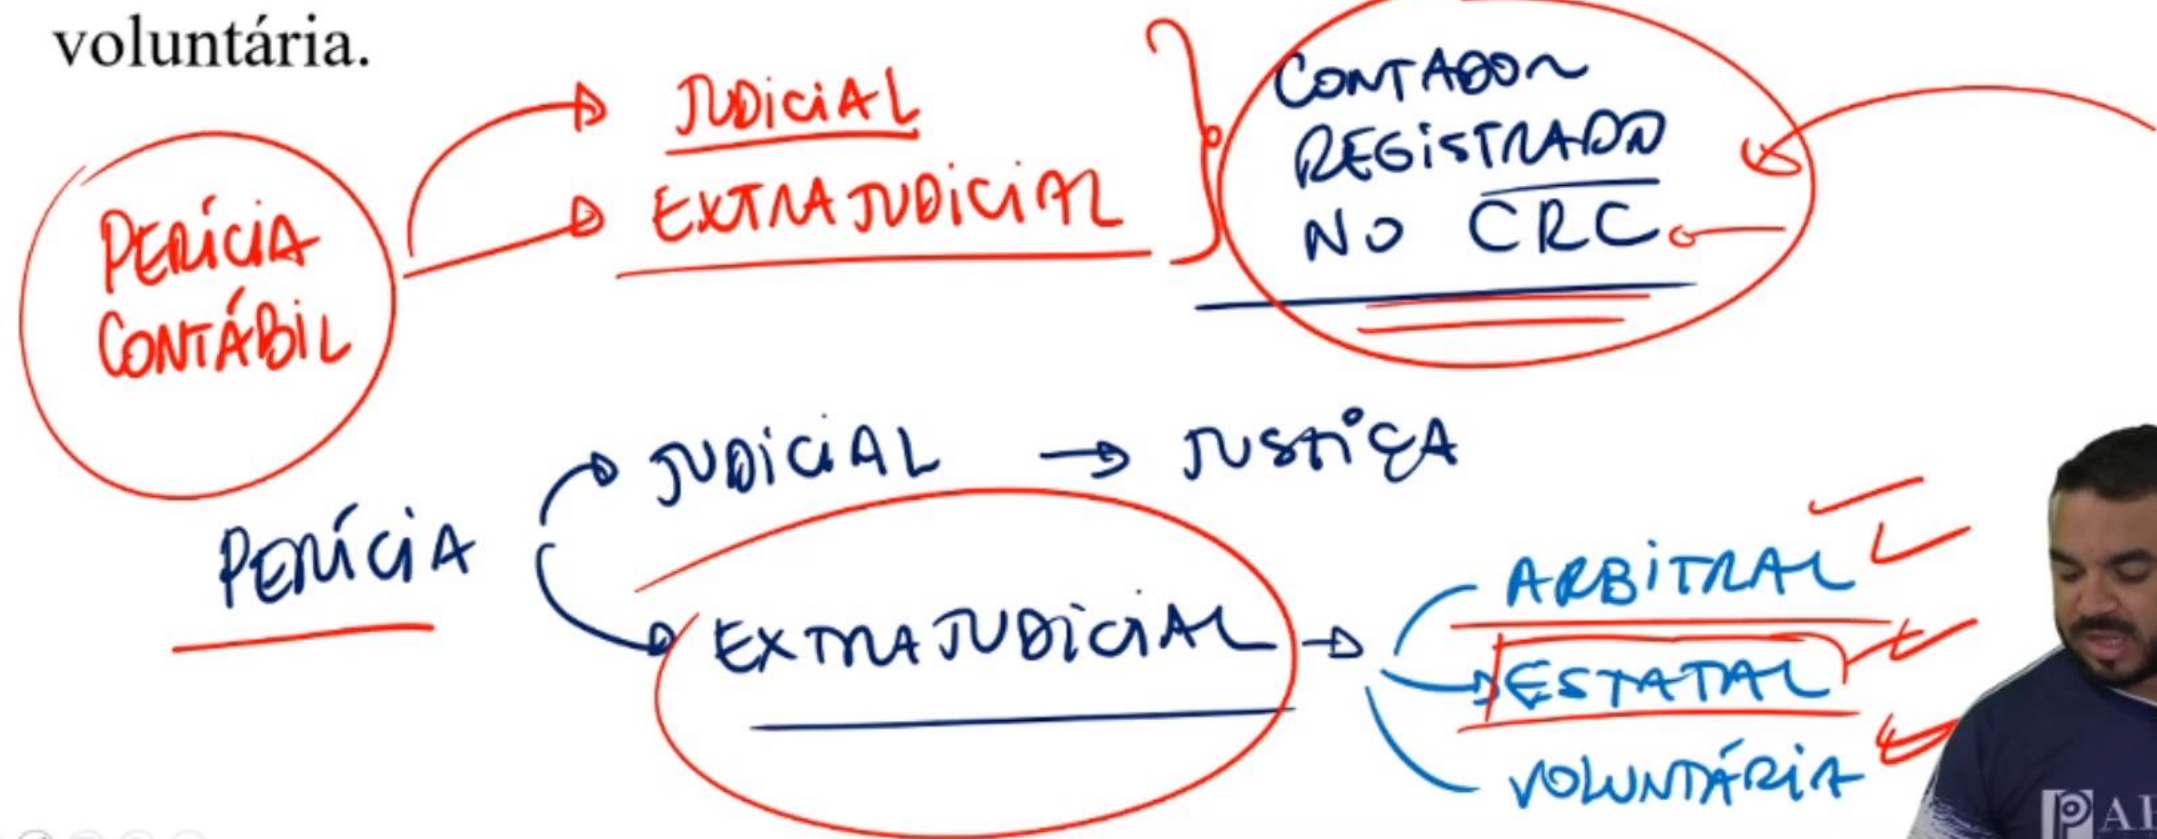 voluntária.
PERÍCIA
CONTÁBIL
JUDICIAL
EXTRAJUDICIAL
CONTADOR
REGISTRADO
NO CRC
PERÍCIA
JUDICIAL → JUSTIÇA
EXTRAJUDICIAL →
ARBITRAL
ESTATAL
VOLUNTÁRIA